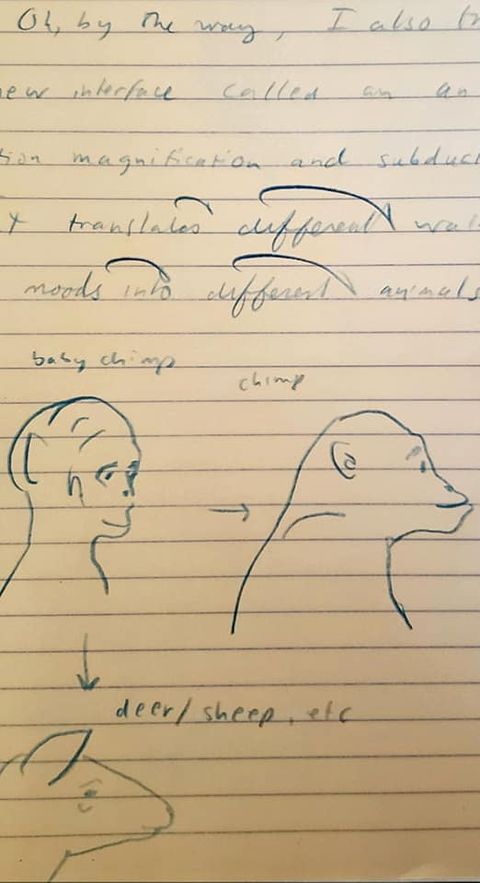 Oh, by the way, I also
new interface called an an
tion magnification and subduc
translates different
moods into different animals
baby chimp
chimp
deer/ sheep, etc